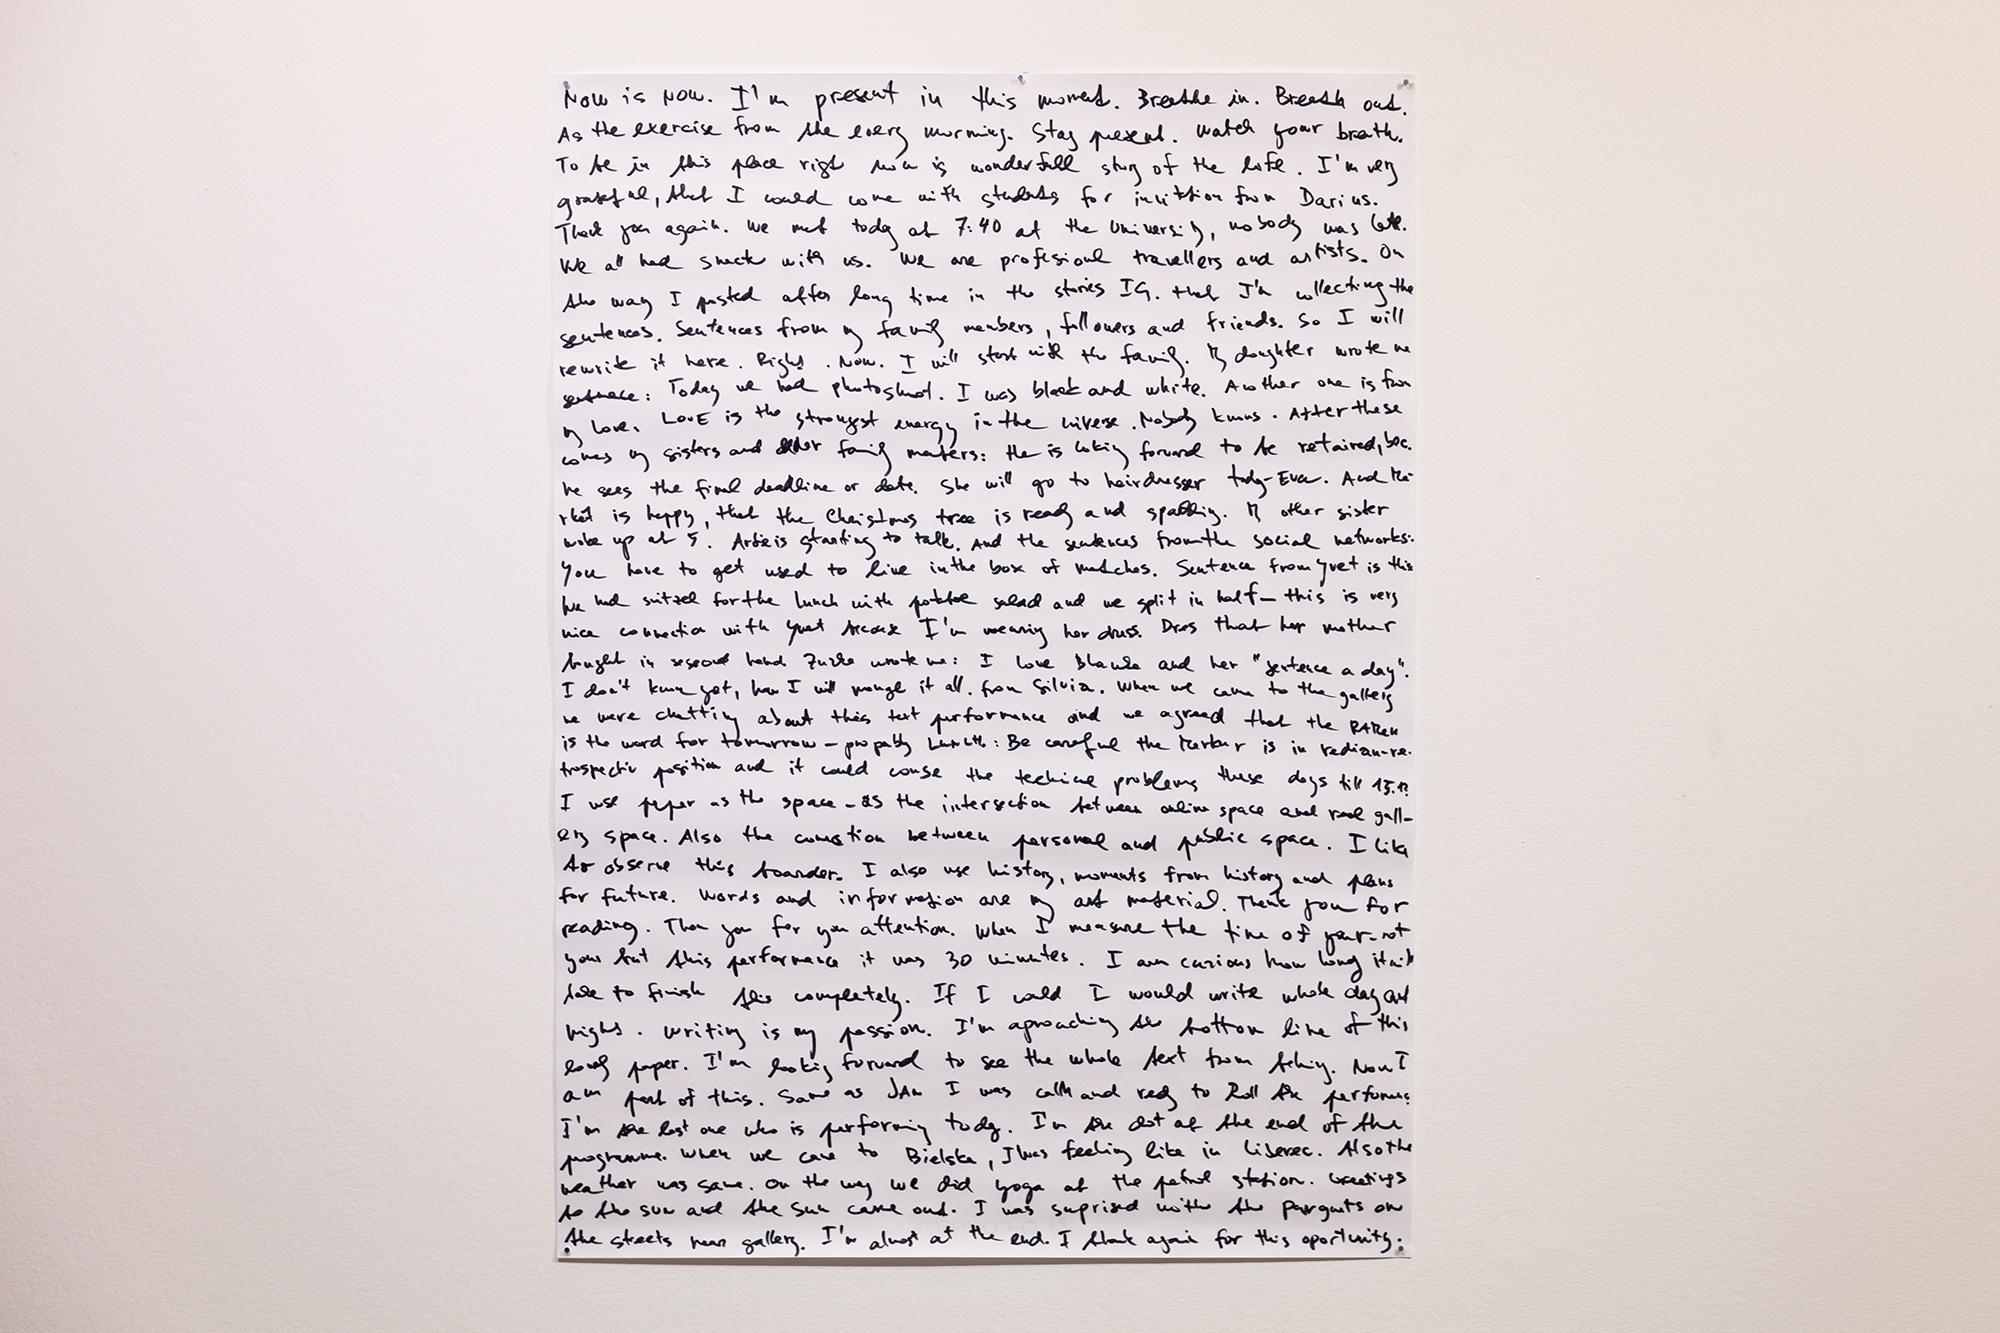 Now is now. I'm present in this moment. Breathe in. Breath out.
As the exercise from the every morning. Stay present. Watch your breath.
To be in this place right now is wonderfull story of the life. I'm very
grateful, that I could come with students for invitation from Darius.
Thank you again. We met today at 7:40 at the University, nobody was late.
We all had snack with us. We are profesional travellers and artists. On
the way I posted after long time in the stories IG. that I'm collecting the
sentences. Sentences from my family members, followers and friends. So I will
rewrite it here. Right. Now. I will start with the family. My daughter wrote me
sentence: Today we had photoshoot. I was black and white. Another one is from
my love. LovE is the strongest energy in the universe. Nobody knows. After these
comes my sisters and other family members: He is loking forward to be retaired, bec.
he sees the final deadline or date. She will go to hairdresser today-Eva. And Ma-
rket is happy, that the Christmas tree is ready and sparkling. My other sister
woke up at 5. is starting to talk. And the sentences from the social networks:
You have to get used to live in the box of matches. Sentence from Yvet is this
We had snitzel for the lunch with potatoe salad and we split in half - this is very
nice connection with Yvet because I'm wearing her dress. Dres that her mother
bought in second hand. Zuzka wrote me: I love Blanka and her "sentence a day".
I don't know yet, how I will manage it all. from Silvia. When we came to the gallery
we were chatting about this text performance and we agreed that the RAMEN
is the word for tomorrow - propably LUNCH: Be careful the Merkur is in redian-re-
trospectiv position and it could couse the techical problems these days till 15.12
I use paper as the space - as the intersection between online space and real gall-
ery space. Also the conection between personal and public space. I like
to observe this boarder. I also use history, moments from history and plans
for future. Words and information are my art material. Thank you for
reading. Than you for you attention. When I measure the time of your - not
your but this performance it was 30 minutes. I am curious how long it will
take to finish this completely. If I could I would write whole day and
night. Writing is my passion. I'm aproaching the bottom line of this
long paper. I'm looking forward to see the whole text from Now I
am part of this. Same as JAn I was calm and ready to Roll the
I'm the last one who is performing today. I'm the dot at the end of the
programme. When we came to Bielska, I was feeling like in Liberec. Also the
weather was same. On the way we did yoga at the petrol station. Greetings
to the sun and the sun came out. I was suprised with the on
the streets near gallery. I'm almost at the end. I thank again for this oportunity.